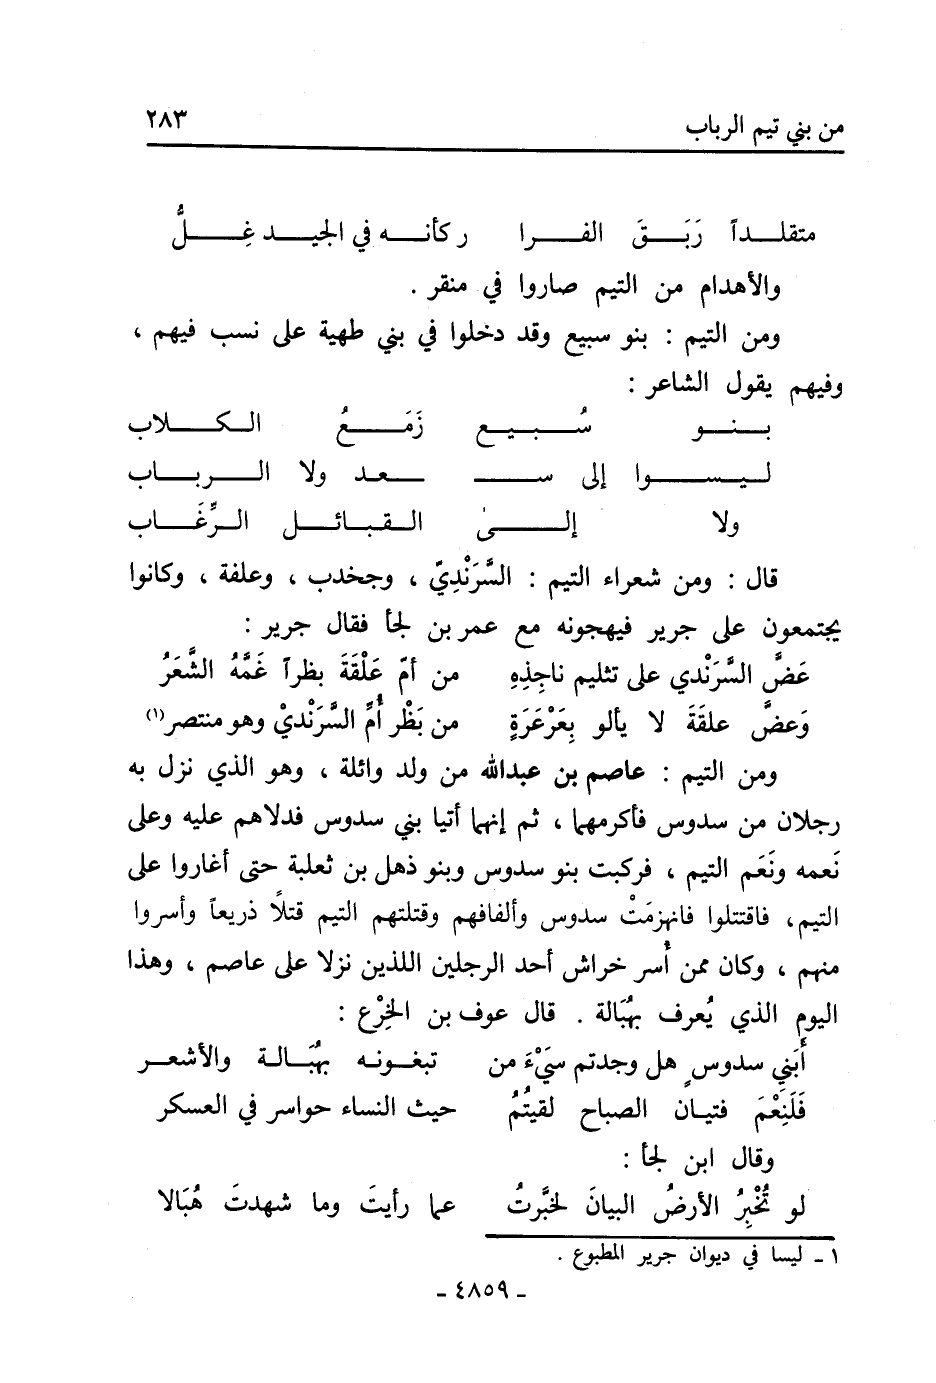 من بني تيم الرباب ٢٨٣
متقلداً رَبَقَ الفرا ركأنه في الجيد غِلُّ
والأهدام من التيم صاروا في منقر .
ومن التيم : بنو سبيع وقد دخلوا في بني طهية على نسب فيهم ،
وفيهم يقول الشاعر :
بنو سُبيع زَمَعُ الكلاب
ليسوا إلى سعد ولا الرباب
ولا إلىٰ القبائل الرِّغَاب
قال : ومن شعراء التيم : السَّرَنْدِيّ ، وجخدب ، وعلفة ، وكانوا
يجتمعون على جرير فيهجونه مع عمر بن لجأ فقال جرير :
عَضَّ السَّرَنْدي على تثليم ناجِذِهِ من أمّ عَلْقَةَ بظراً غَمَّهُ الشَّعَرُ
وَعضَّ علقَةَ لا يألو بِعَرْعَرَةٍ من بَظْر أُمِّ السَّرَنْديْ وهو منتصر(١)
ومن التيم : عاصم بن عبدالله من ولد وائلة ، وهو الذي نزل به
رجلان من سدوس فأكرمهما ، ثم إنهما أتيا بني سدوس فدلاهم عليه وعلى
نَعمه ونَعَم التيم ، فركبت بنو سدوس وبنو ذهل بن ثعلبة حتى أغاروا على
التيم، فاقتتلوا فانهزمَتْ سدوس وألفافهم وقتلتهم التيم قتلاً ذريعاً وأسروا
منهم ، وكان ممن أُسر خراش أحد الرجلين اللذين نزلا على عاصم ، وهذا
اليوم الذي يُعرف بهُبَالة . قال عوف بن الخِرْع :
أَبَني سدوسٍ هل وجدتم سَيْءَ من تبغونه بهُبَالة والأشعر
فَلَنِعْمَ فتيان الصباح لقيتُمُ حيث النساء حواسر في العسكر
وقال ابن لجأ :
لو تُخْبِرُ الأرضُ البيانَ لخبَّرتُ عما رأيتَ وما شهدتَ هُبَالا
١ ـ ليسا في ديوان جرير المطبوع .
ـ ٤٨٥٩ ـ